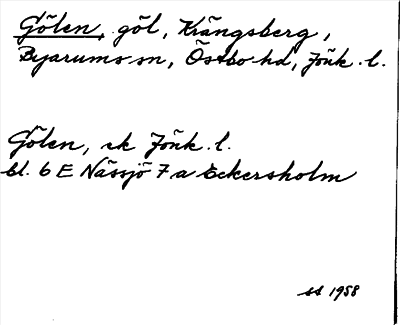 Gölen, göl, Krängsberg,
Byarums sn, Östbo hd, Jönk. l.
Gölen, ek Jönk. l.
bl. 6 E Nässjö 7 a Eckersholm
ss 1958